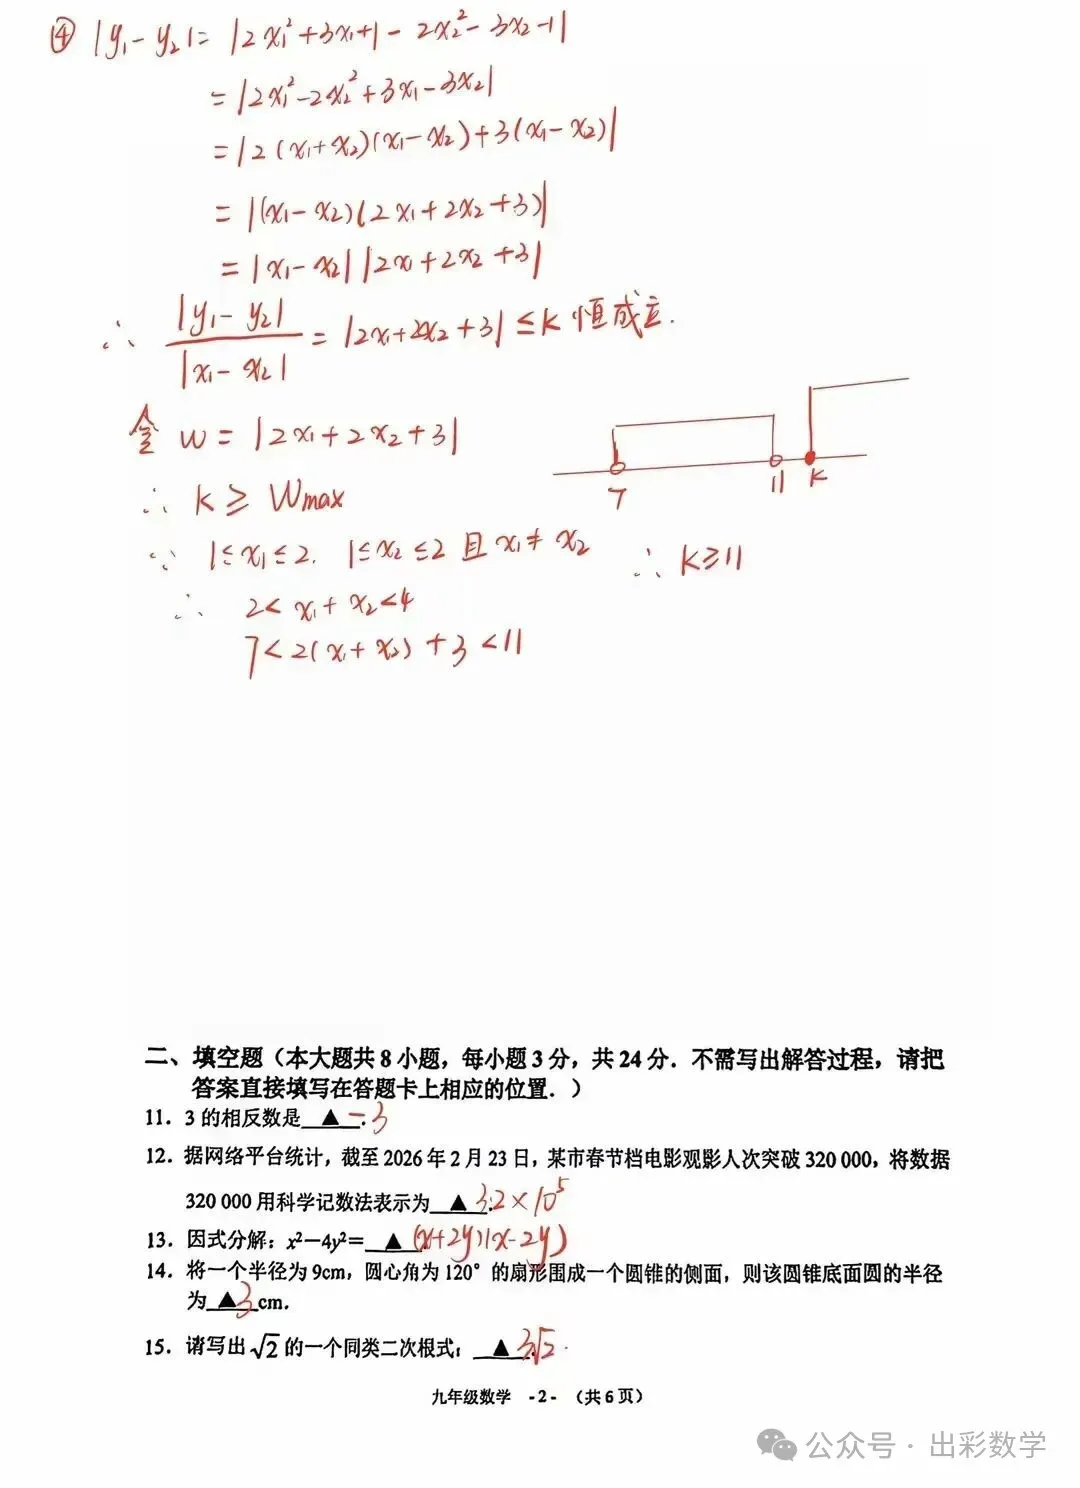 ④ |y₁-y₂|= |2x₁²+3x₁+1-2x₂²-3x₂-1|
= |2x₁²-2x₂²+3x₁-3x₂|
= |2(x₁+x₂)(x₁-x₂)+3(x₁-x₂)|
= |(x₁-x₂)(2x₁+2x₂+3)|
= |x₁-x₂| |2x₁+2x₂+3|
∴ |y₁-y₂| / |x₁-x₂| = |2x₁+2x₂+3| ≤ K 恒成立.
令 w = |2x₁+2x₂+3|
7 11 K
∴ K ≥ Wmax
∵ 1≤x₁≤2. 1≤x₂≤2 且 x₁≠x₂ ∴ K≥11
∴ 2< x₁+x₂<4
7<2(x₁+x₂)+3<11
二、填空题（本大题共 8 小题，每小题 3 分，共 24 分．不需写出解答过程，请把
答案直接填写在答题卡上相应的位置．）
11．3 的相反数是 ▲ . -3
12．据网络平台统计，截至 2026 年 2 月 23 日，某市春节档电影观影人次突破 320 000，将数据
320 000 用科学记数法表示为 ▲ . 3.2×10⁵
13．因式分解：x²－4y²= ▲ (x+2y)(x-2y)
14．将一个半径为 9cm，圆心角为 120°的扇形围成一个圆锥的侧面，则该圆锥底面圆的半径
为 ▲ 3 cm．
15．请写出 √2 的一个同类二次根式： ▲ . 3√2
九年级数学 -2- （共 6 页）
公众号 · 出彩数学